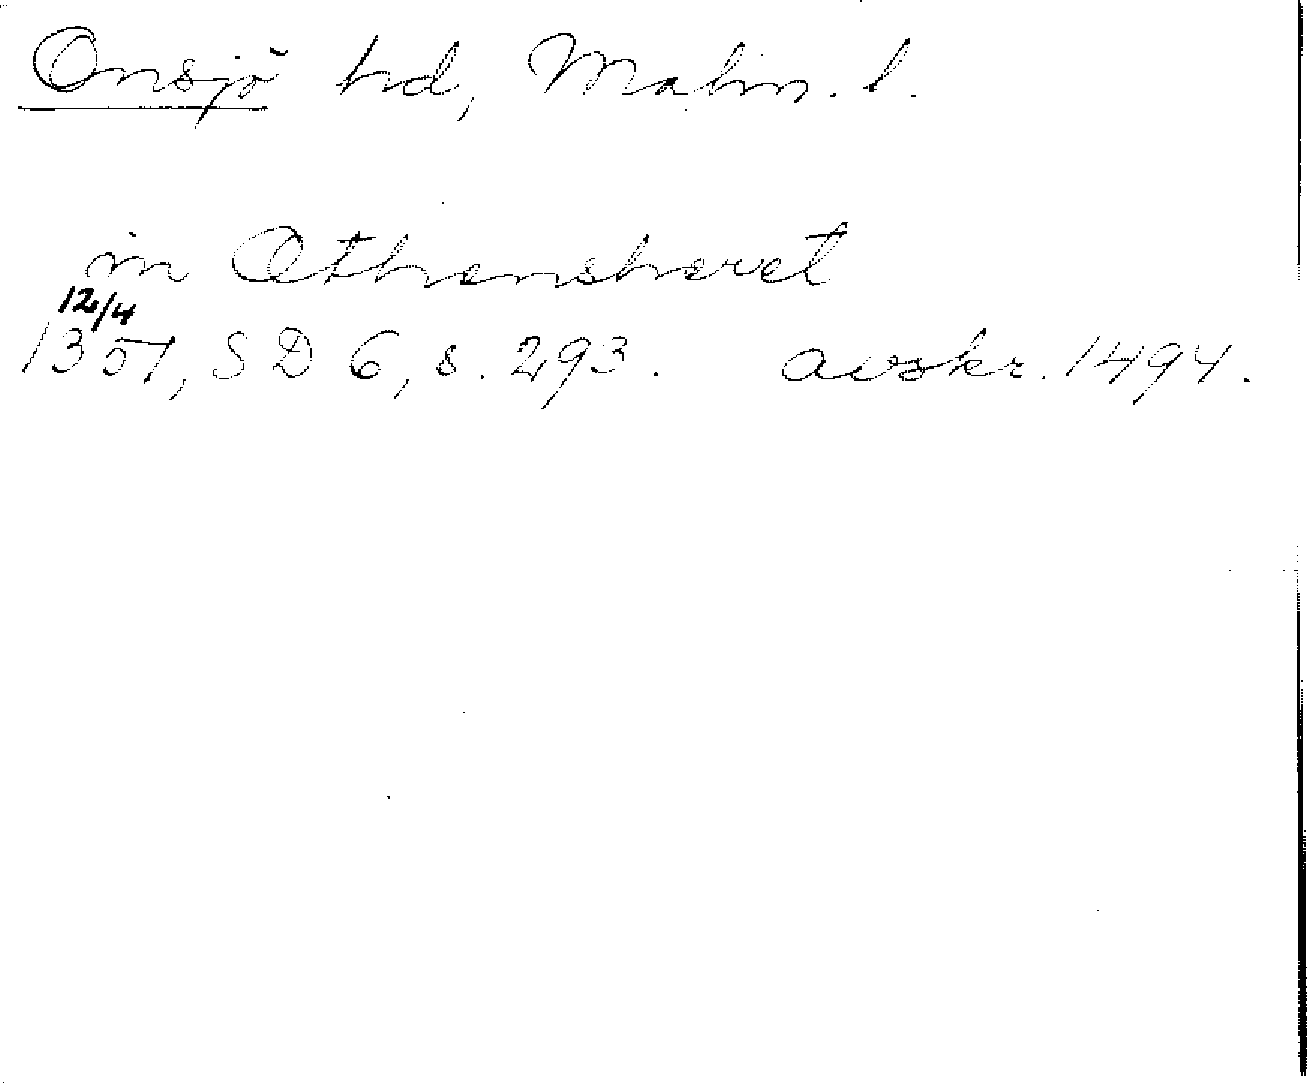 Onsjö hd, Malm. l.
in Othenshæret
12/4
1351, SD 6, s. 293. avskr. 1494.